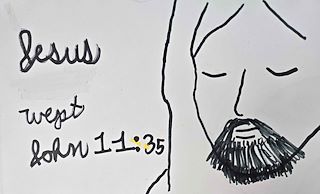 Jesus
wept
John 11:35